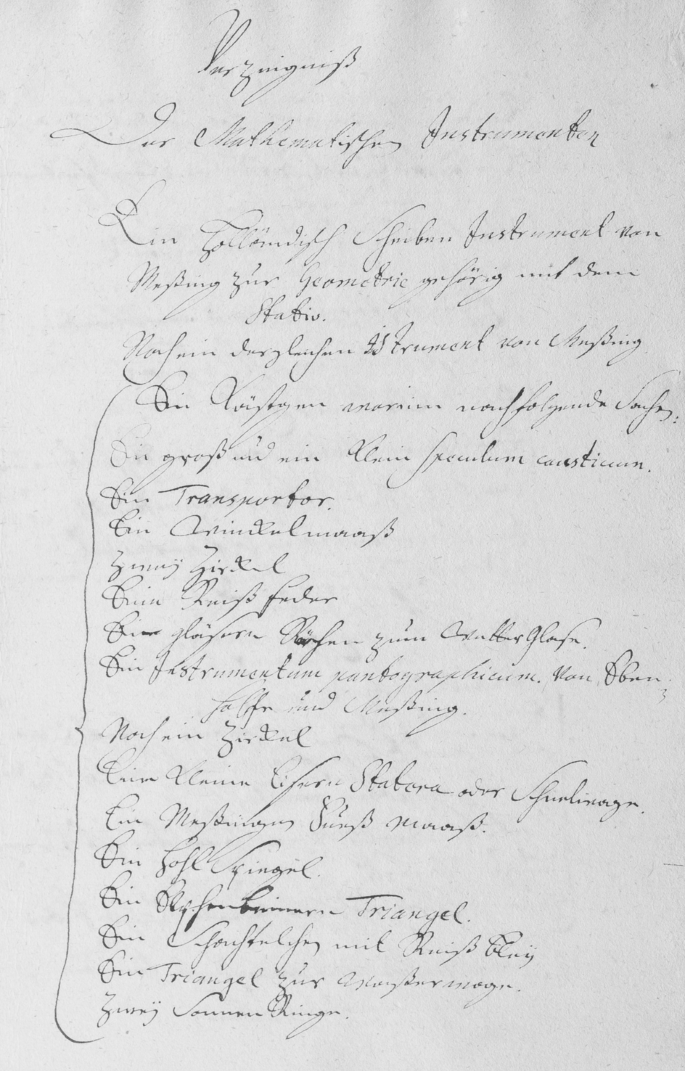 Verzeigniß
Der Mathematischen Instrumenten
Ein Holländisch Scheiben Instrument von
Meßing zur Geometrie gehörig mit dem
Stativ.
Noch ein dergleichen Instrument von Meßing
Ein Kästgen worinn nachfolgende Sachen:
Ein groß und ein klein speculum causticum.
Ein Transportor.
Ein Winckelmaaß
Zwey Zirckel
Eine Reiß feder
Ein gläsern Röhrchen zum Wetter Glase.
Ein Instrumentum pantographicum. von Eben-
holtz und Meßing.
Noch ein Zirckel
Eine kleine Eisern Statera oder Schnelwage.
Ein Meßingen Fueß maaß.
Ein Hohl Spiegel.
Ein Triangel.
Ein Schächtelchen mit Reiß bley
Ein Triangel zur Waßerwage.
Zwey Sonnen Ringe.